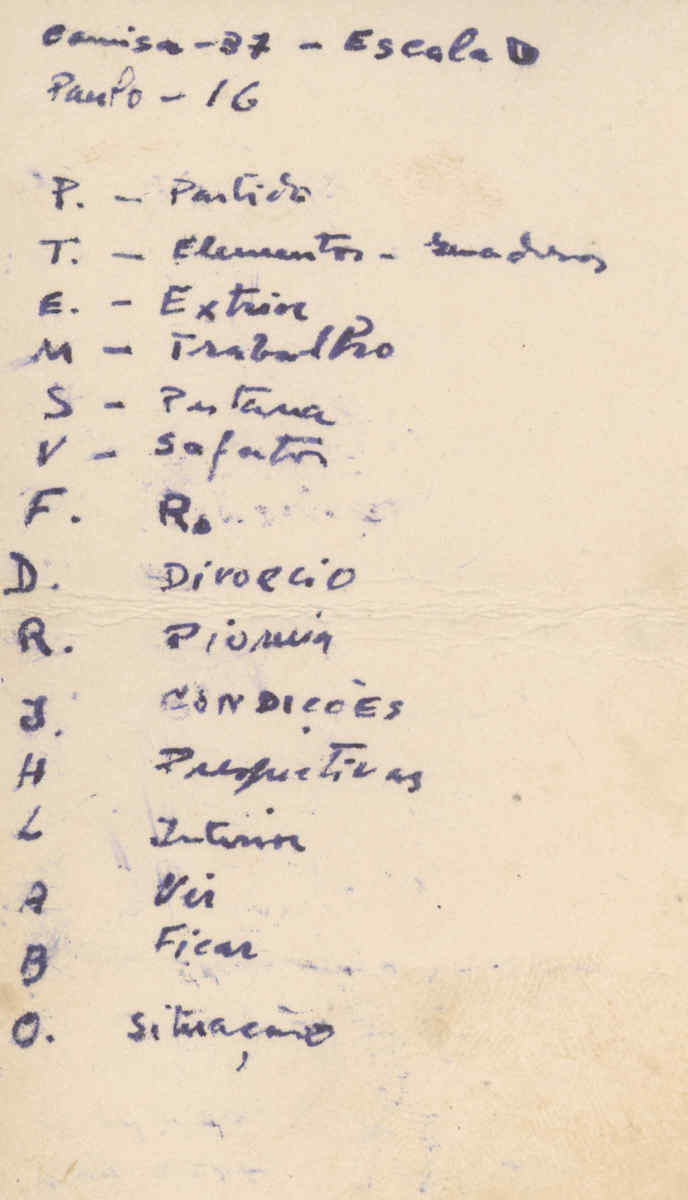 Camisa - 37 - Escala D
Paulo - 16
P. - Partido
T. - Elementos -
E. - Extrior
M - Trabalho
S - Pestana
V - Sapatos
F. Ro
D. Divorcio
R. Piorria
J. CONDIÇÕES
H Prespectivas
L Interior
A Vir
B Ficar
O. Situação